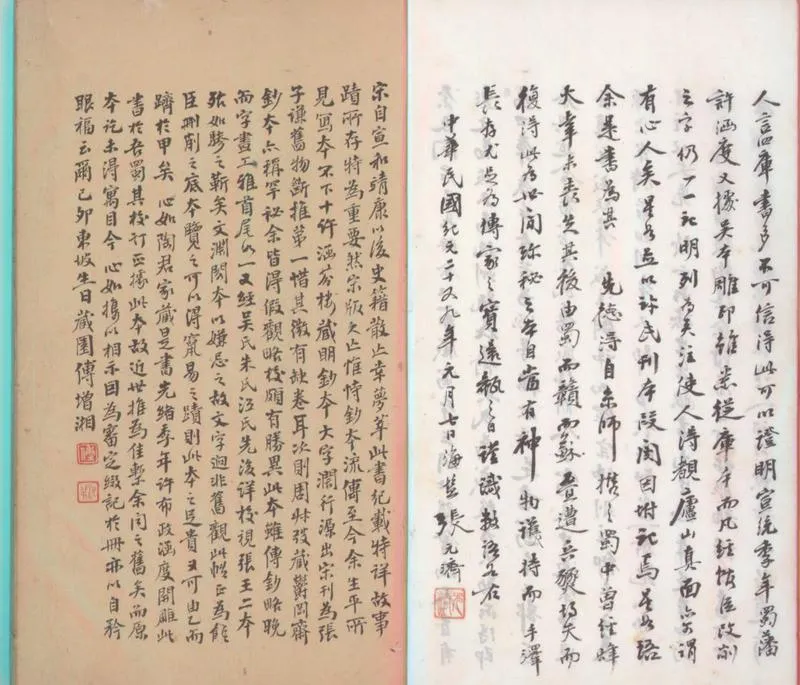 人言四庫書多不可信得此可以證明宣統季年蜀藩
許涵度又據吳本雕印雖悉從庫本而凡經館臣改削
之字仍一一記明列為夾注使人得覩廬山真面亦謂
有心人矣星如并以許氏刊本段閱因附記焉星如語
余是書為其 先德得自京師 携之蜀中曾經
大幸未喪失其後由蜀而贛而蘇叠遭兵燹均失而
復得此為世間珍秘之本自當有神物護持而手澤
長存尤足為傳家之寶遠報之日謹識數語
中華民國紀元二十又九年元月七日海鹽張元濟
宋自宣和靖康以後史籍散亡章夢莘此書紀載特詳故事
蹟所存特為重要然宋版久亡惟恃鈔本流傳至今余生平所
見寫本不下十許涵芬樓藏明鈔本大字濶行源出宋刊為張
子謙舊物斷推第一惜其微有缺卷耳次則周叔弢藏鬱岡齋
鈔本亦稱罕祕余皆得假觀略校頗有勝異此本雖傳鈔略晚
而字畫工雅首尾如一又經吳氏朱氏江氏先後詳校視張王二本
殆如驂之靳矣文淵閣本以嫌忌之故文字迥非舊觀此帙正為館
臣刪削之底本覽之可以得竄易之蹟則此本之足貴又可由乙而
躋於甲矣 心如陶君家藏是書光緒季年許布政涵度開雕此
書於吾蜀其校訂正據此本故近世推為佳槧余聞之舊矣而原
本迄未得寓目今 心如携以相示因為審定綴記於冊亦以自矜
眼福云爾己卯東坡生日藏園傅增湘